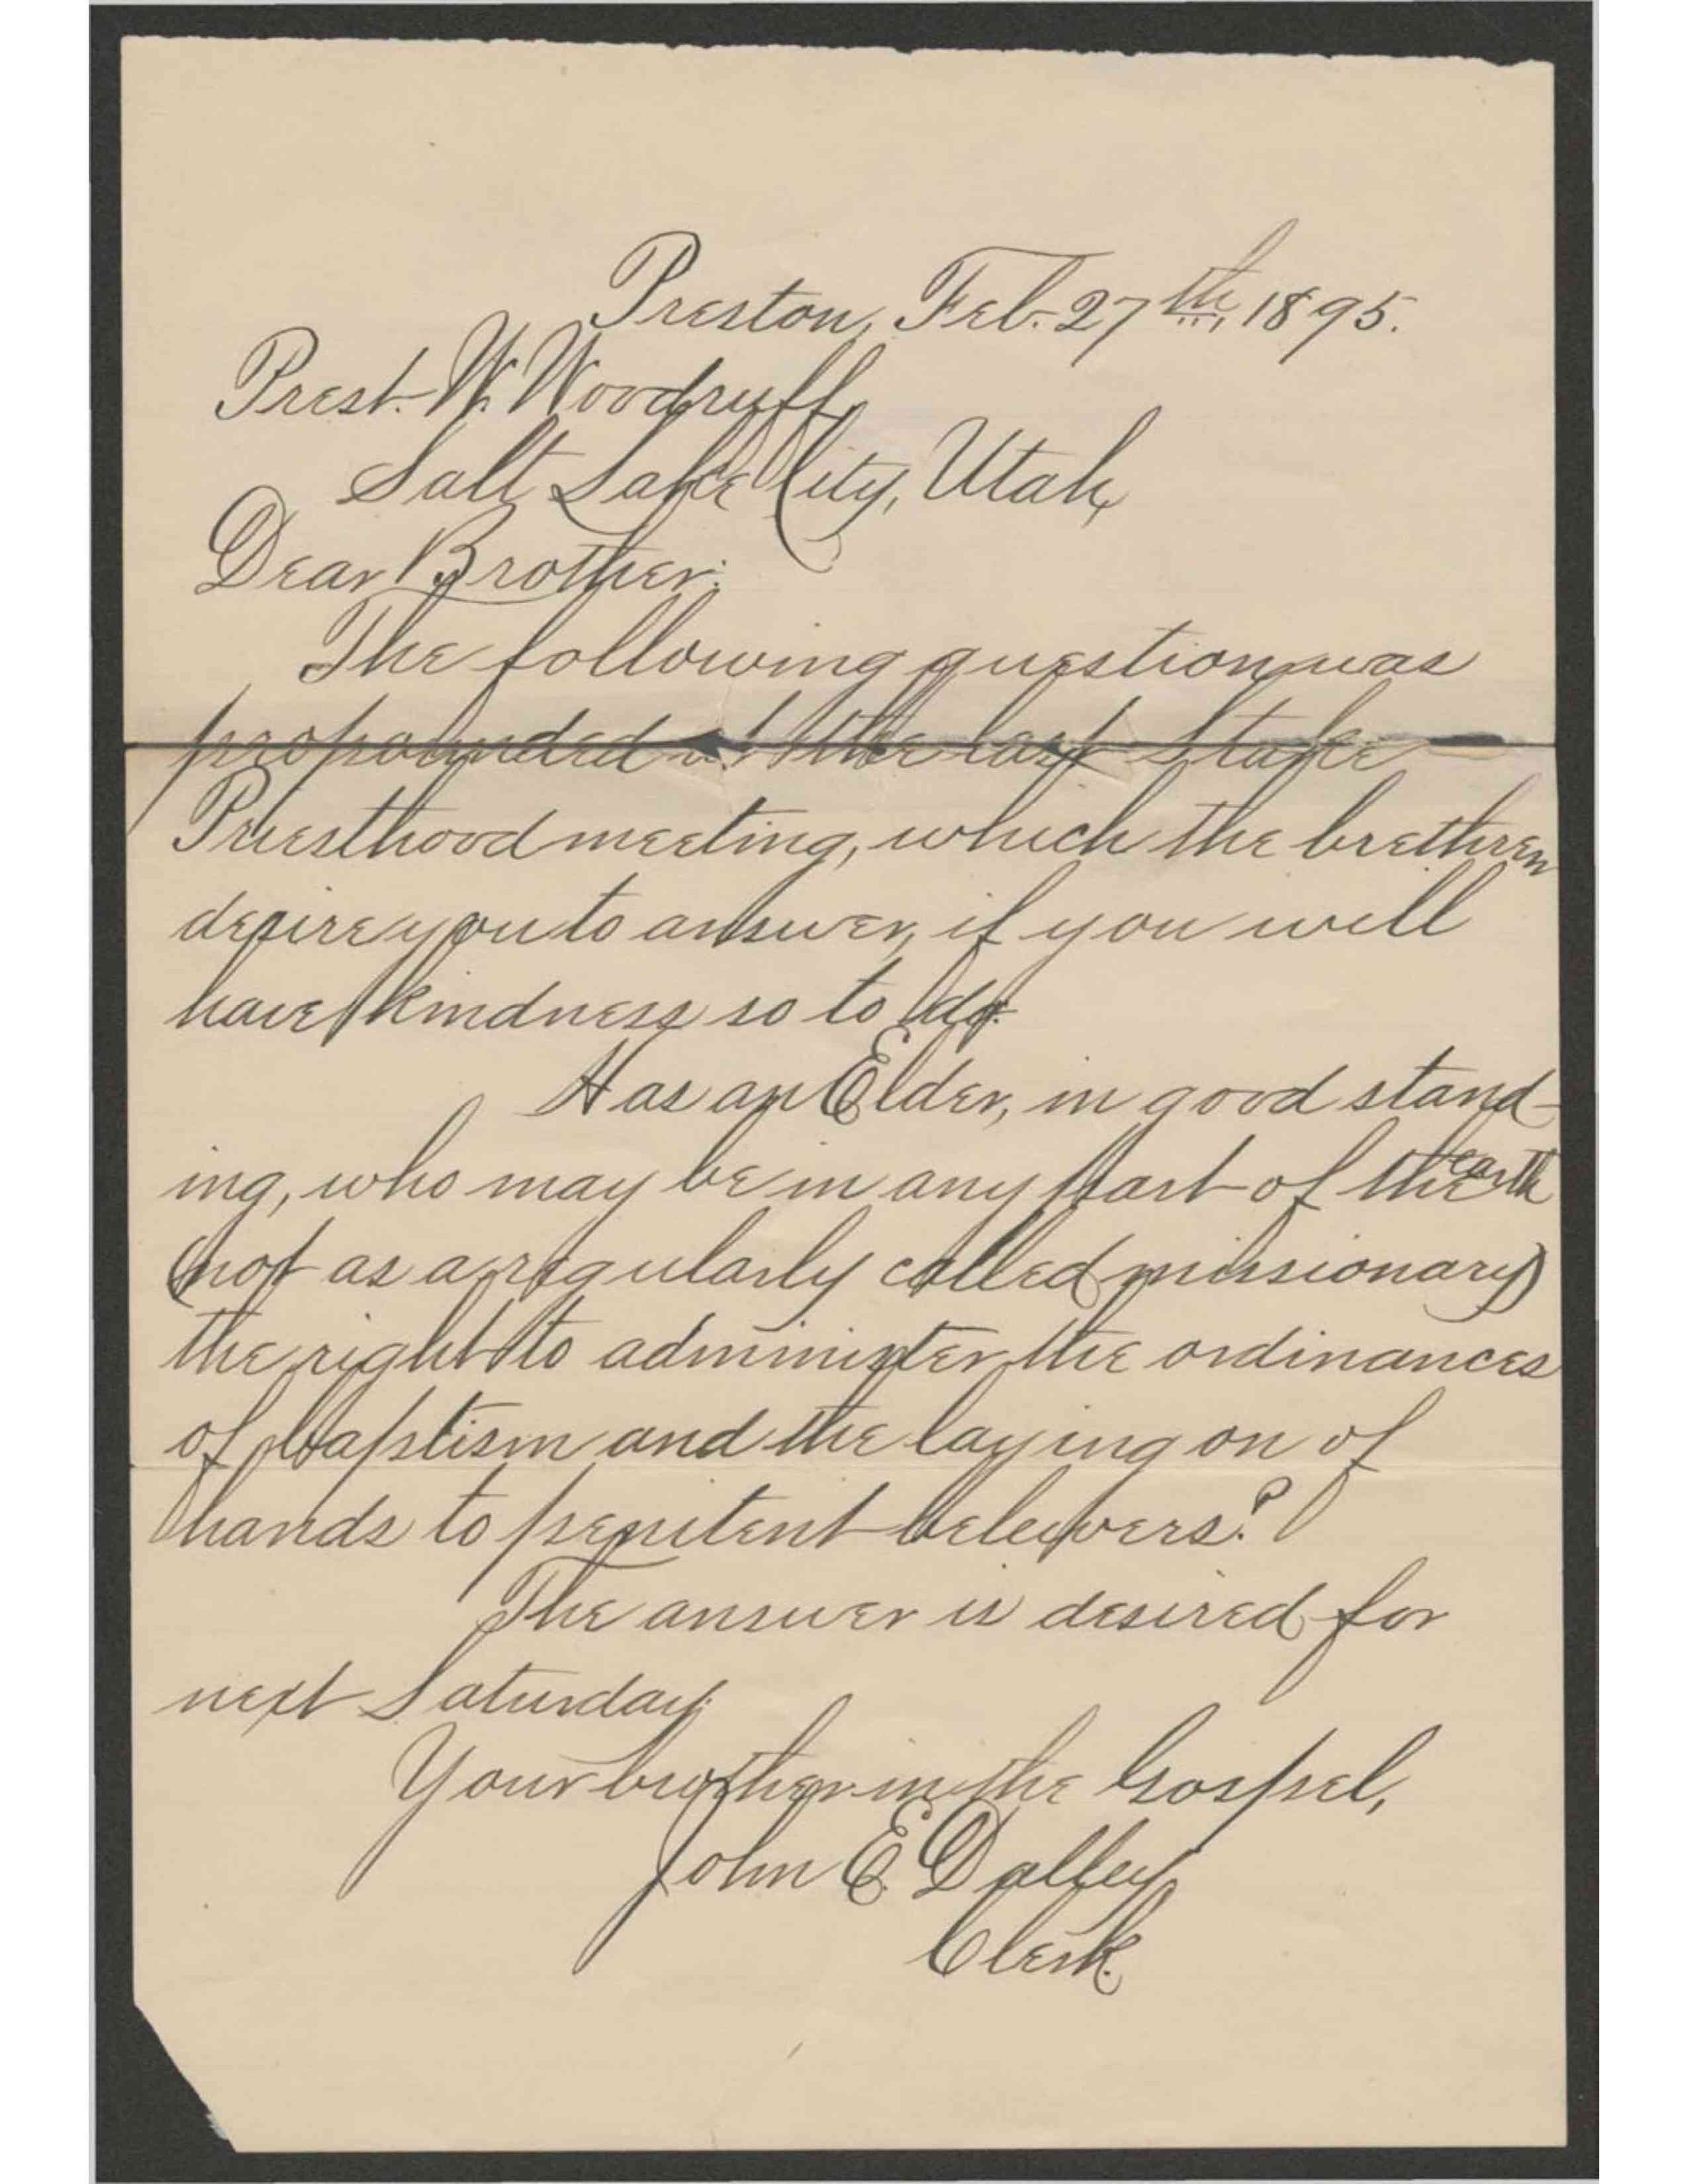 Preston, Feb. 27th, 1895.
Prest. W. Woodruff,
Salt Lake City, Utah,
Dear Brother:
The following question was
propounded at the last Stake
Priesthood meeting, which the brethren
desire you to answer, if you will
have kindness so to do.
Has an Elder, in good stand-
ing, who may be in any part of the earth
(not as a regularly called missionary)
the right to administer the ordinances
of baptism and the laying on of
hands to penitent beleivers?
The answer is desired for
next Saturday.
Your brother in the Gospel,
John E. Dalley
Clerk.